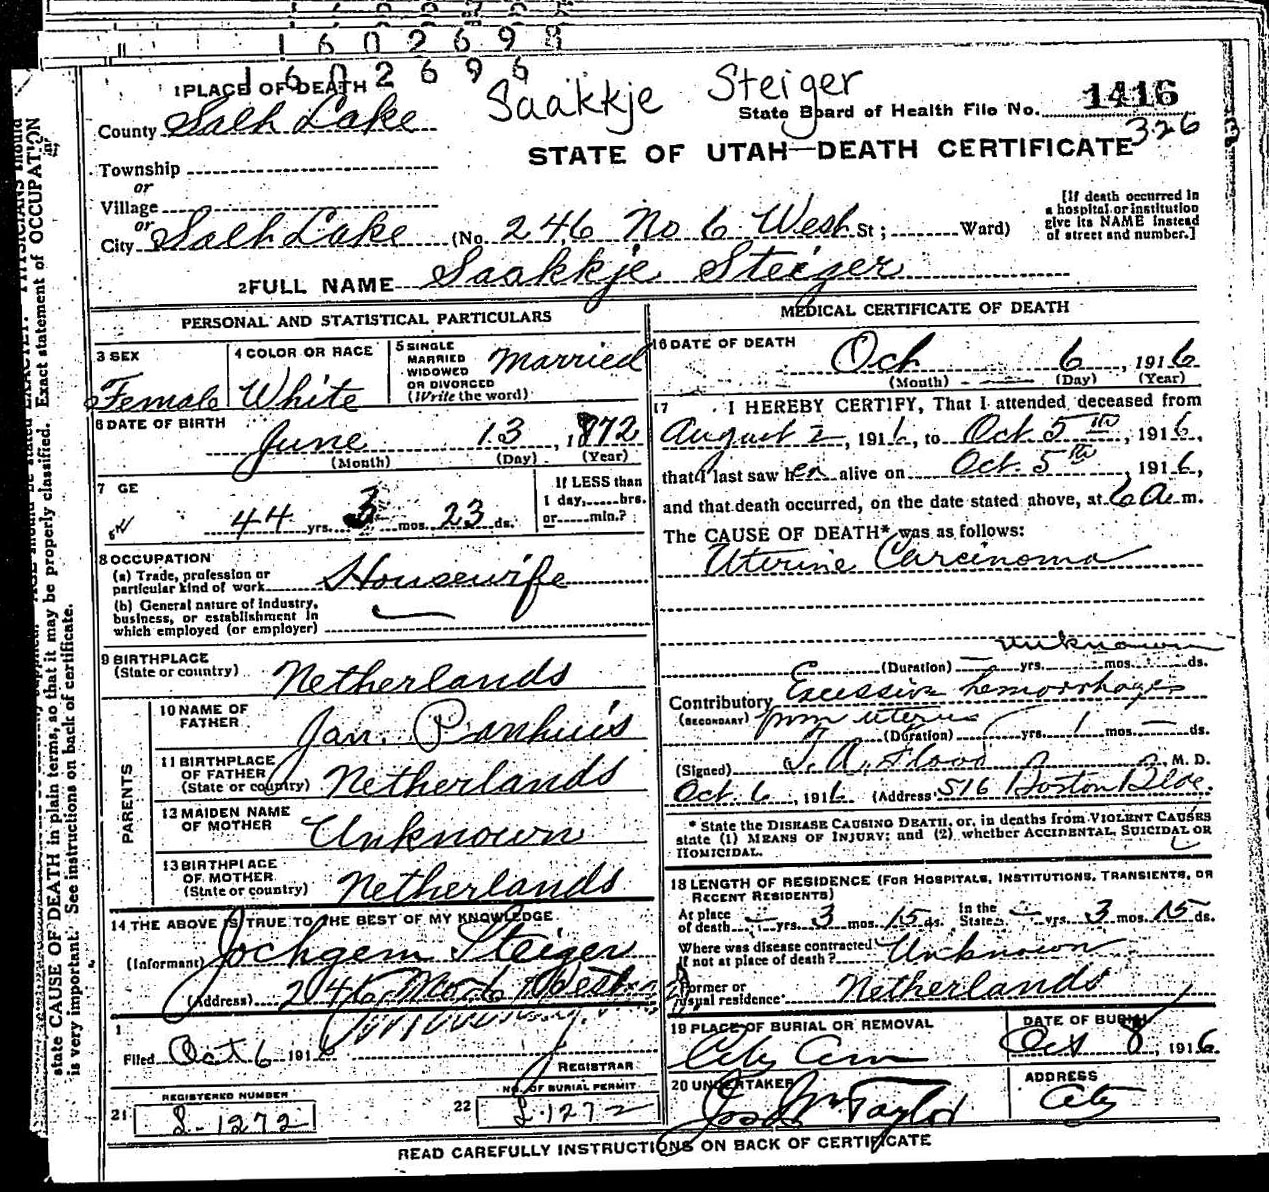 1602698
1602696
1 PLACE OF DEATH
Saakkje Steiger
State Board of Health File No. 1416
County Salt Lake
326
STATE OF UTAH—DEATH CERTIFICATE
Township
or
Village
or
City Salt Lake (No. 246 No 6 West St; Ward)
[If death occurred in
a hospital or institution
give its NAME instead
of street and number.]
2 FULL NAME Saakkje Steiger
PERSONAL AND STATISTICAL PARTICULARS
3 SEX
Female
4 COLOR OR RACE
White
5 SINGLE
MARRIED
WIDOWED
OR DIVORCED
(Write the word)
Married
6 DATE OF BIRTH
June 13, 1872
(Month) (Day) (Year)
7 GE
44 yrs. 3 mos. 23 ds.
If LESS than
1 day,......hrs.
or......min.?
8 OCCUPATION
(a) Trade, profession or
particular kind of work Housewife
(b) General nature of industry,
business, or establishment in
which employed (or employer)
9 BIRTHPLACE
(State or country) Netherlands
PARENTS
10 NAME OF
FATHER Jan. Pankuis
11 BIRTHPLACE
OF FATHER
(State or country) Netherlands
12 MAIDEN NAME
OF MOTHER Unknown
13 BIRTHPLACE
OF MOTHER
(State or country) Netherlands
14 THE ABOVE IS TRUE TO THE BEST OF MY KNOWLEDGE
(Informant) Jochgem Steiger
(Address) 246 No 6 West
Filed Oct 6 1916
REGISTRAR
REGISTERED NUMBER
21 S-1272
NO. OF BURIAL PERMIT
22 S-1272
MEDICAL CERTIFICATE OF DEATH
16 DATE OF DEATH
Oct 6, 1916
(Month) (Day) (Year)
17 I HEREBY CERTIFY, That I attended deceased from
August 2, 1916, to Oct. 5th, 1916,
that I last saw her alive on Oct. 5th, 1916,
and that death occurred, on the date stated above, at 6 a m.
The CAUSE OF DEATH* was as follows:
Uterine Carcinoma
unknown
(Duration) yrs. mos. ds.
Contributory Excessive hemorrhages
(SECONDARY) from uterus
(Duration) yrs. 1 mos. ds.
(Signed) T. A. Flood, M. D.
Oct. 6, 1916 (Address 516 Boston Bldg.
* State the DISEASE CAUSING DEATH, or, in deaths from VIOLENT CAUSES
state (1) MEANS OF INJURY; and (2) whether ACCIDENTAL, SUICIDAL OR
HOMICIDAL.
18 LENGTH OF RESIDENCE (FOR HOSPITALS, INSTITUTIONS, TRANSIENTS, OR
RECENT RESIDENTS)
At place
of death yrs. 3 mos. 15 ds.
In the
State yrs. 3 mos. 15 ds.
Where was disease contracted
if not at place of death? Unknown
Former or
usual residence Netherlands
19 PLACE OF BURIAL OR REMOVAL
City Cem
DATE OF BURIAL
Oct 8, 1916
20 UNDERTAKER
Jos Wm Taylor
ADDRESS
City
READ CAREFULLY INSTRUCTIONS ON BACK OF CERTIFICATE
state CAUSE OF DEATH in plain terms, so that it may be properly classified. Exact statement of OCCUPATION
is very important. See instructions on back of certificate.